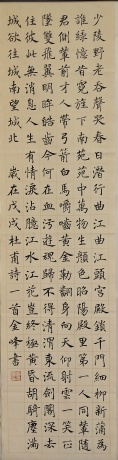 少陵野老吞聲哭春日潛行曲江曲江頭宮殿鎖千門細柳新蒲為
誰綠憶昔霓旌下南苑苑中萬物生顏色昭陽殿裏第一人同輦隨
君側輦前才人帶弓箭白馬嚼齧黃金勒翻身向天仰射雲一笑正
墜雙飛翼明眸皓齒今何在血污遊魂歸不得清渭東流劍閣深去
住彼此無消息人生有情淚沾臆江水江花豈終極黃昏胡騎塵滿
城欲往城南望城北 歲在戊戌杜甫詩一首金峰書